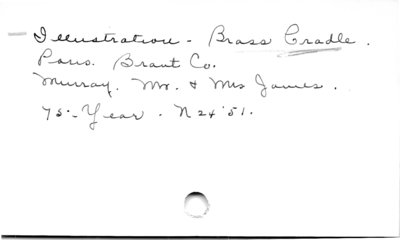 Illustration - Brass Cradle.
Paris. Brant Co.
Murray. Mr. & Mrs James.
75 - Year. N 24 '51.